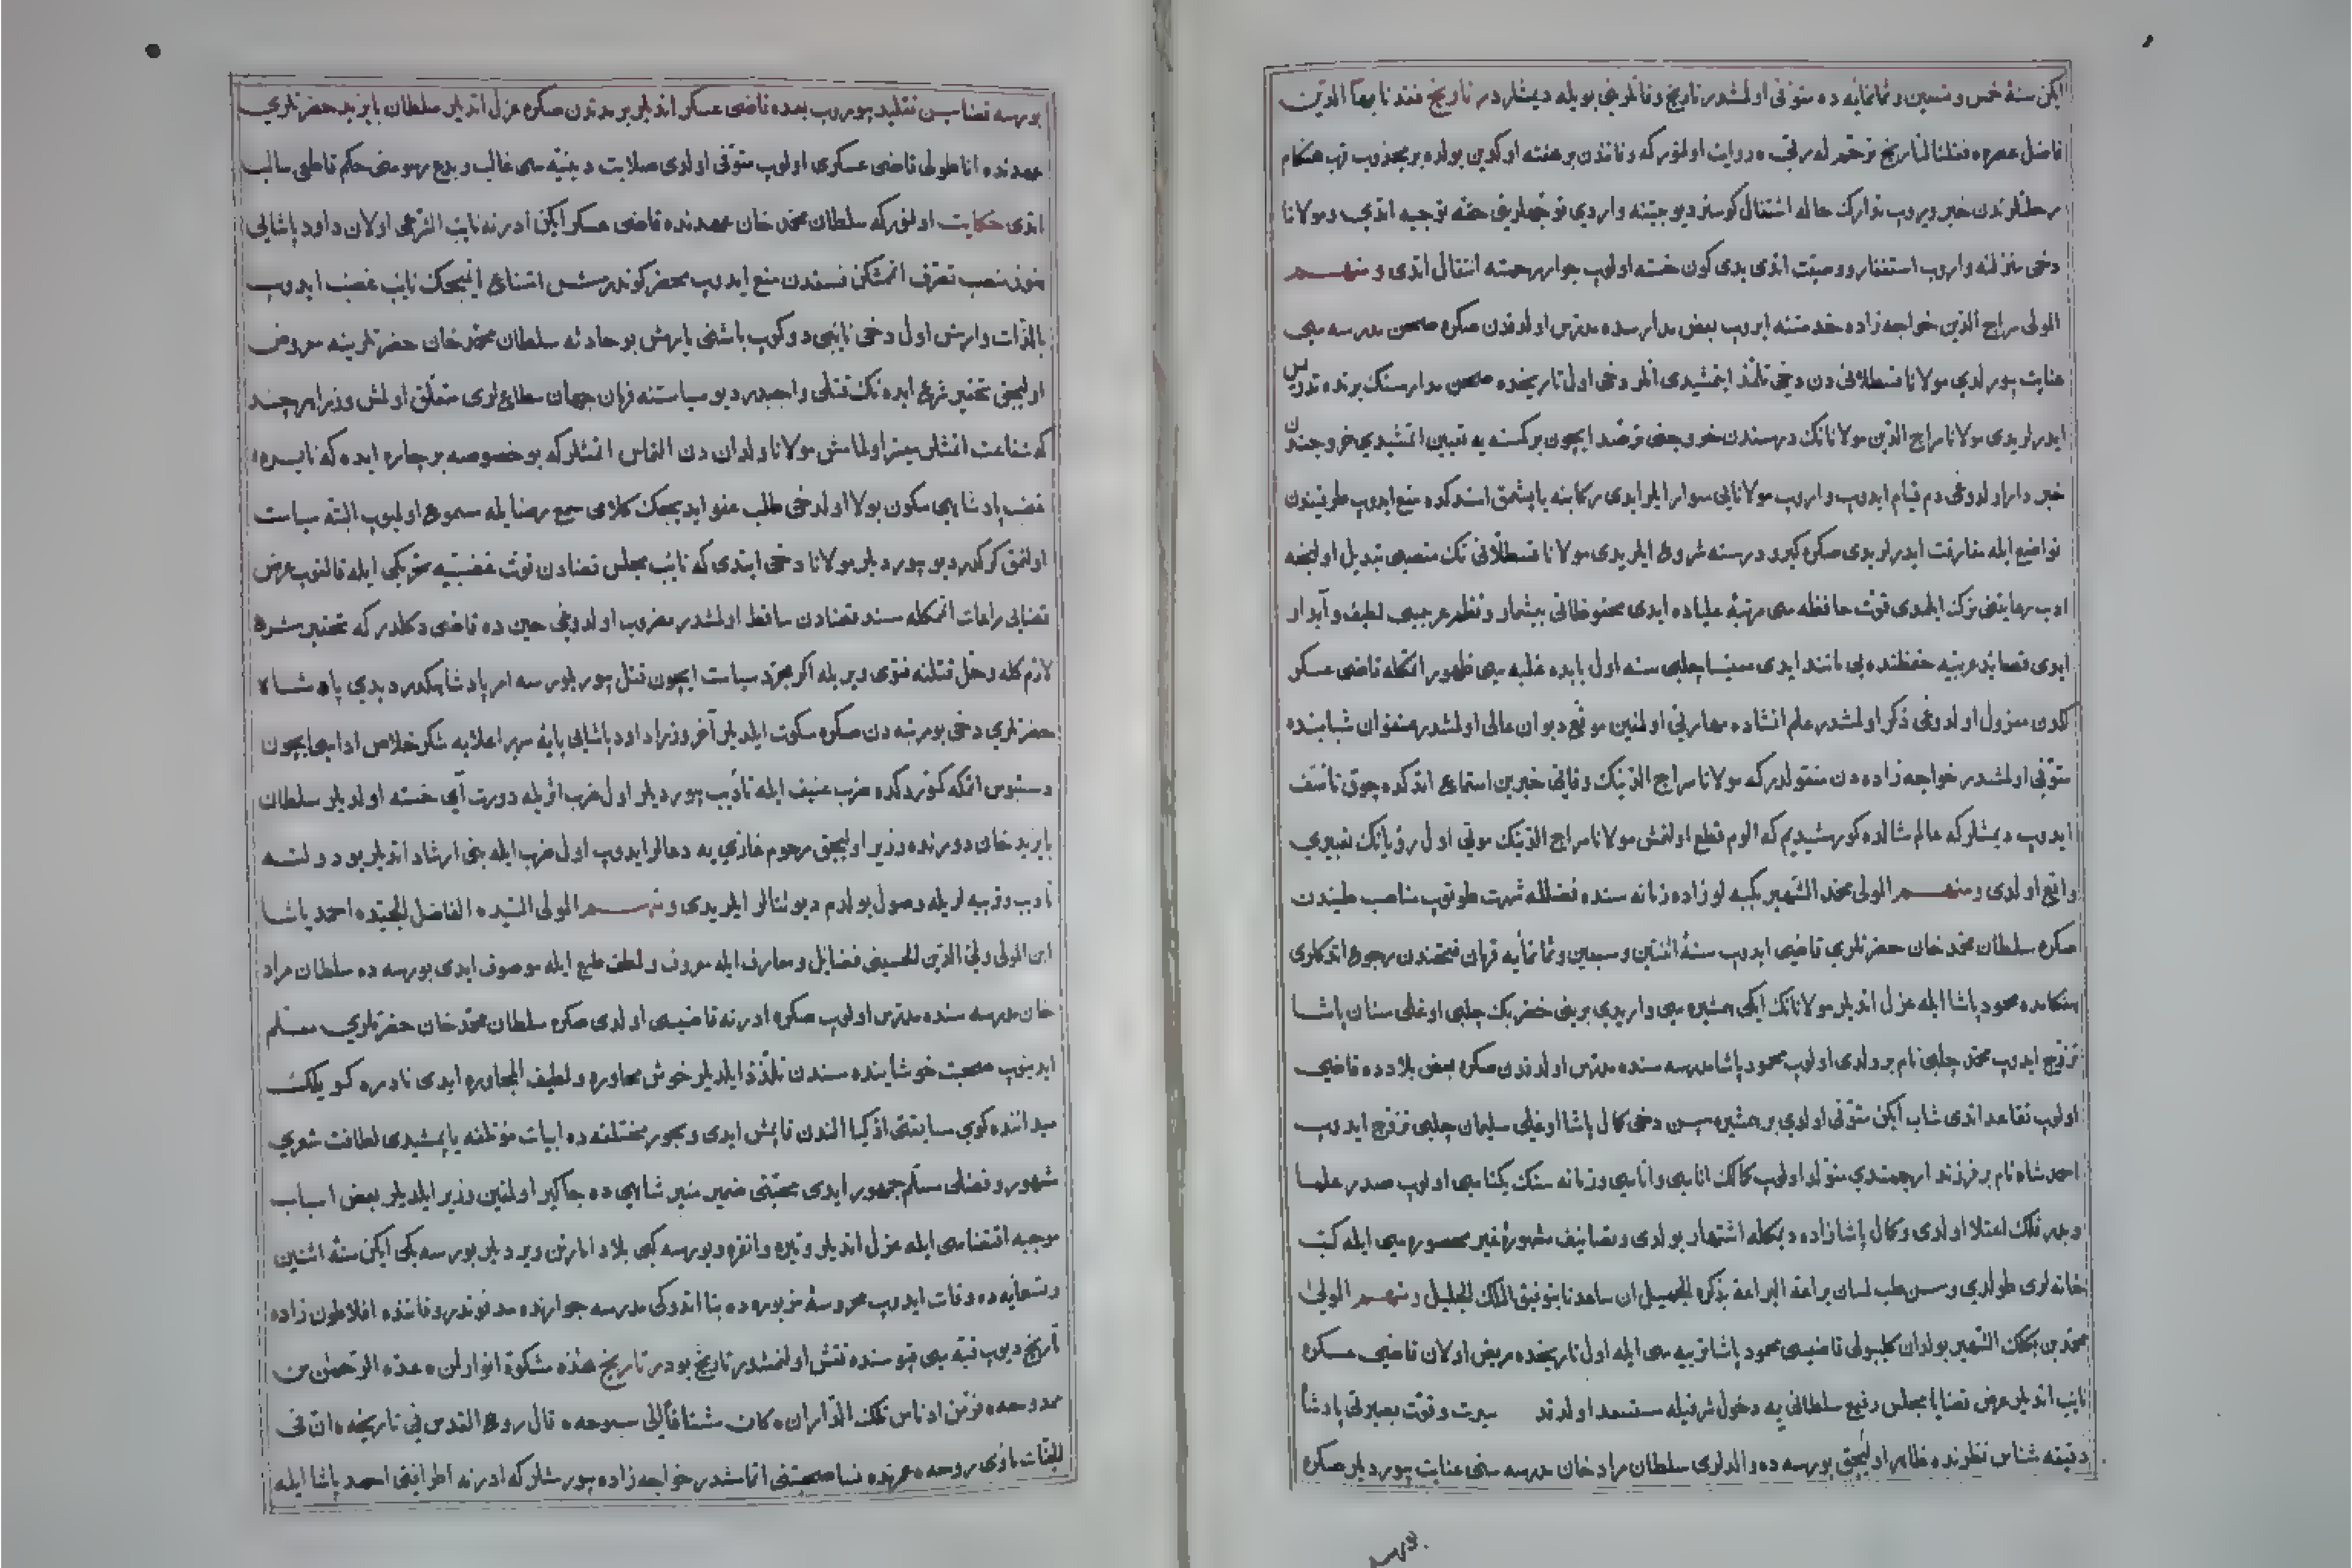 ایکن سنهٔ خمس و تسعین و ثمانمایه ده متوفی اولمشدر تاریخ وفاتلرینی بویله دیمشلردر تاریخ فقدنا بهاء الدین
فاضل عصره فقلنا لتاریخ ترحم له روایت اولنور که وفاتندن بر هفته اوکدین بولده بر مجذوب
رحلتلرندن خبر ویروب تدارك حاله اشتغال کوستر دیوجیتنه واردی توجهلرینی حقه توجیه ایدیب و مولانا
دخی منزلنه واروب استغفار و وصیت ایدی یدی کون خسته اولوب جوار رحمته انتقال ایدی و منهم
المولی سراج الدین خواجه زاده خدمتنه ایروب بعض مدارسده مدرس اولدقدن صکره صحن مدرسه سی
عنایت بیورلدی مولانا قسطلانی دن دخی تلمذ ایتمشیدی انلر دخی اول تاریخده صحن مدارسنك برنده تدریس
ایدرلریدی مولانا سراج الدین مولانانك درسندن خروجنی ترصد ایچون بر کمسنه یه تعیین اتمشیدی خروجندن
خبر دار اولدوغی دم قیام ایدوب واروب مولانایی سوار ایلر ایدی رکابنه یاپشمق استدکده منع ایدوب طریقندن
تواضع ایله مفارقت ایدرلریدی صکره کیرو درسنه شروع ایلریدی مولانا قسطلانی نك منصبی تبدیل اولیجه
ادب رعایتنی ترك ایلمدی قوت حافظه سی مرتبهٔ علیاده ایدی محفوظاتی بیشمار و نظم عربیسی لطیف و آبدار
ایدی قصاید عربیه حفظنده بی مانند ایدی اول بابده غلبه سی ظهور اتمکله قاضی عسکر
معزول اولدوغی ذکر اولمشدر علم انشاده مهارتی اولمغین موقع دیوان عالی اولمشدر عنفوان شبابنده
متوفی اولمشدر خواجه زاده دن منقولدر که مولانا سراج الدینك وفاتی خبرین استماع اتدکده چوق تأسف
ایدوب دیمشلر که عالم مثالده کورمشیدیم که الوم قطع اولنمش مولانا سراج الدینك موتی اول رؤیانك تعبیری
واقع اولدی و منهم المولی محمد الشهیر زاده زمانه سنده فضلله شهرت طوتوب مناصب طیندن
صکره سلطان محمد خان حضرتلری قاضی ایدوب سنهٔ اثنتین و سبعین و ثمانمأیه قرمان فتحندن رجوع اتدکلری
هنکامده محمود پاشا ایله عزل اتدیلر مولانانك ایکی همشیره سی واریدی برینی خضر بك چلبی اوغلی سنان پاشا
تزوج ایدوب محمد چلبی نام بر ولدی اولوب محمود پاشا مدرسه سنده مدرس اولدقدن صکره بعض بلادده قاضی
اولوب تقاعد اتدی شاب ایکن متوفی اولدی بر همشیره سین دخی کمال پاشا اوغلی سلیمان چلبی تزوج ایدوب
احمد شاه نام بر فرزند ارجمندی متولد اولوب کمالك اناسی و اتاسی و زمانه سنك یکتاسی اولوب صدر علما
و بدر فلك اعتلا اولدی و کمال پاشا زاده دیمکله اشتهار بولدی و تصانیف مشهورهٔ غیر محصوره سی ایله کتب
خانه لری طولدی و سن طیب لسان براعة الیراعة بذکره الجمیل ان ساعدنا بتوفیق الملك الجلیل و منهم المولی
محمد بن الشهیر بولدان کلیبولی قاضیسی محمود پاشا تربیه سی ایله اول تاریخده مریض اولان قاضی عسکره
نایب اتدیلر عرض قضایا مجلس رفیع سلطانی یه دخول شرفیله مستسعد اولدقده سیرت و قوت بصیرتی پادشاه
دقیقه شناس نظرنده ظاهر اولیجق بورسه ده والدلری سلطان مراد خان مدرسه سنی عنایت بیوردیلر صکره
بورسه
بورسه قضاسین تقلید بیوروب بعده قاضی عسکر اتدیلر بر مدتدن صکره عزل اتدیلر سلطان بایزید حضرتلری
عهدنده اناطولی قاضی عسکری اولوب متوفی اولدی صلابت دینیه سی غالب و بدع حکم قاطعی سالب
ایدی حکایت اولنور که سلطان محمد خان عهدنده قاضی عسکر ایکن ادرنه نایب الشرعی اولان داود پاشایی
منصب تصرف اتمشکن فسقندن منع ایدوب محضر کوندرمش امتناع ایلیجك نایب غضب ایدوب
بالذات وارمش اول دخی نایبی دوکوب باشنی یارمش بو حادثه سلطان محمد خان حضرتلرینه معروض
اولیجق تحقیر شرع ایده نك قتلی واجبدر دیو سیاستنه فرمان جهان مطاعلری متعلق اولمش وزرا هر چند
که شفاعت اتمشلر میسر اولمامش مولانا ولدان دن التماس اتمشلر که بو خصوصه بر چاره ایده که نایره
غضب پادشاهی سکون بولا اولدخی طلب عفو ایدیجك کلامی سمع رضایله مسموع اولمیوب البته سیاست
اولنمق کرکدر دیو بیوردیلر مولانا دخی ایتدی که نایب مجلس قضادن قوت غضبیه تحریکی ایله قالقوب عرض
قضایی مراعات اتمکله مسند قضادن ساقط اولمشدر مضروب اولدوغی حین ده قاضی دکلدر که تحقیر شرع
لازم کله و حل قتلنه فتوی ویریله اکر مجرد سیاست ایچون قتل بیوریلورسه امر پادشاهکدر دیدی پادشاه
حضرتلری دخی بو مرتبه دن صکره سکوت ایلدیلر آخر وزرا داود پاشایی پایهٔ سریر اعلایه شکر خلاص اداسی ایچون
دستبوس اتمکه کوتردکده ضرب عنیف ایله تأدیب بیوردیلر اول ضرب اثریله دورت آی خسته اولدیلر سلطان
بایزید خان دورنده وزیر اولیجق مرحوم غازی یه دعالر ایدوب اول ضرب ایله بنی ارشاد اتدیلر بو دولته
تأدیب و تربیه لریله وصول بولدم دیو ثنالر ایلریدی و منهم المولی السیده الفاضل الجیده احمد پاشا
ابن المولی ولی الدین الحسینی فضایل و معارف ایله معروف و لطف طبع ایله موصوف ایدی بورسه ده سلطان مراد
خان مدرسه سنده مدرس اولوب صکره ادرنه قاضیسی اولدی صکره سلطان محمد خان حضرتلری معلم
ایدینوب صحبت خوشاینده سندن تلذذ ایلدیلر خوش محاوره و لطیف المجاوره ایدی نادره کویلك
میداننده کوی سبقتی اذکیا الندن قاپمش ایدی و بحور مختلفه ده ابیات مؤتلفه یاپمشیدی لطافت شعری
مشهور و فضلی مسلم جمهور ایدی محبتی ضمیر منیر شاهی ده جایکیر اولمغین وزیر ایلدیلر بعض اسباب
موجبه اقتضاسی ایله عزل اتدیلر و تیره و انقره و بورسه کبی بلاد امارتن ویردیلر بورسه بکی ایکن سنهٔ اثنین
و تسعمأیه ده وفات ایدوب محروسهٔ مزبوره ده بنا اتدوکی مدرسه جوارنده مدفوندر وفاتنده افلاطون زاده
تاریخ دیوب قبه سی قپوسنده نقش اولنمشدر تاریخ بودر تاریخ هذه مشکوة انوار لمن عده الرحمن من
ممدوحه فرمن ادناس تلك الدار ان کان مشتاقا الی سبوحه قال روح القدس فی تاریخه ان فی
الجنات مأوی روحه خواجه زاده بیورمشلر که ادرنه اطرافنی احمد پاشا ایله